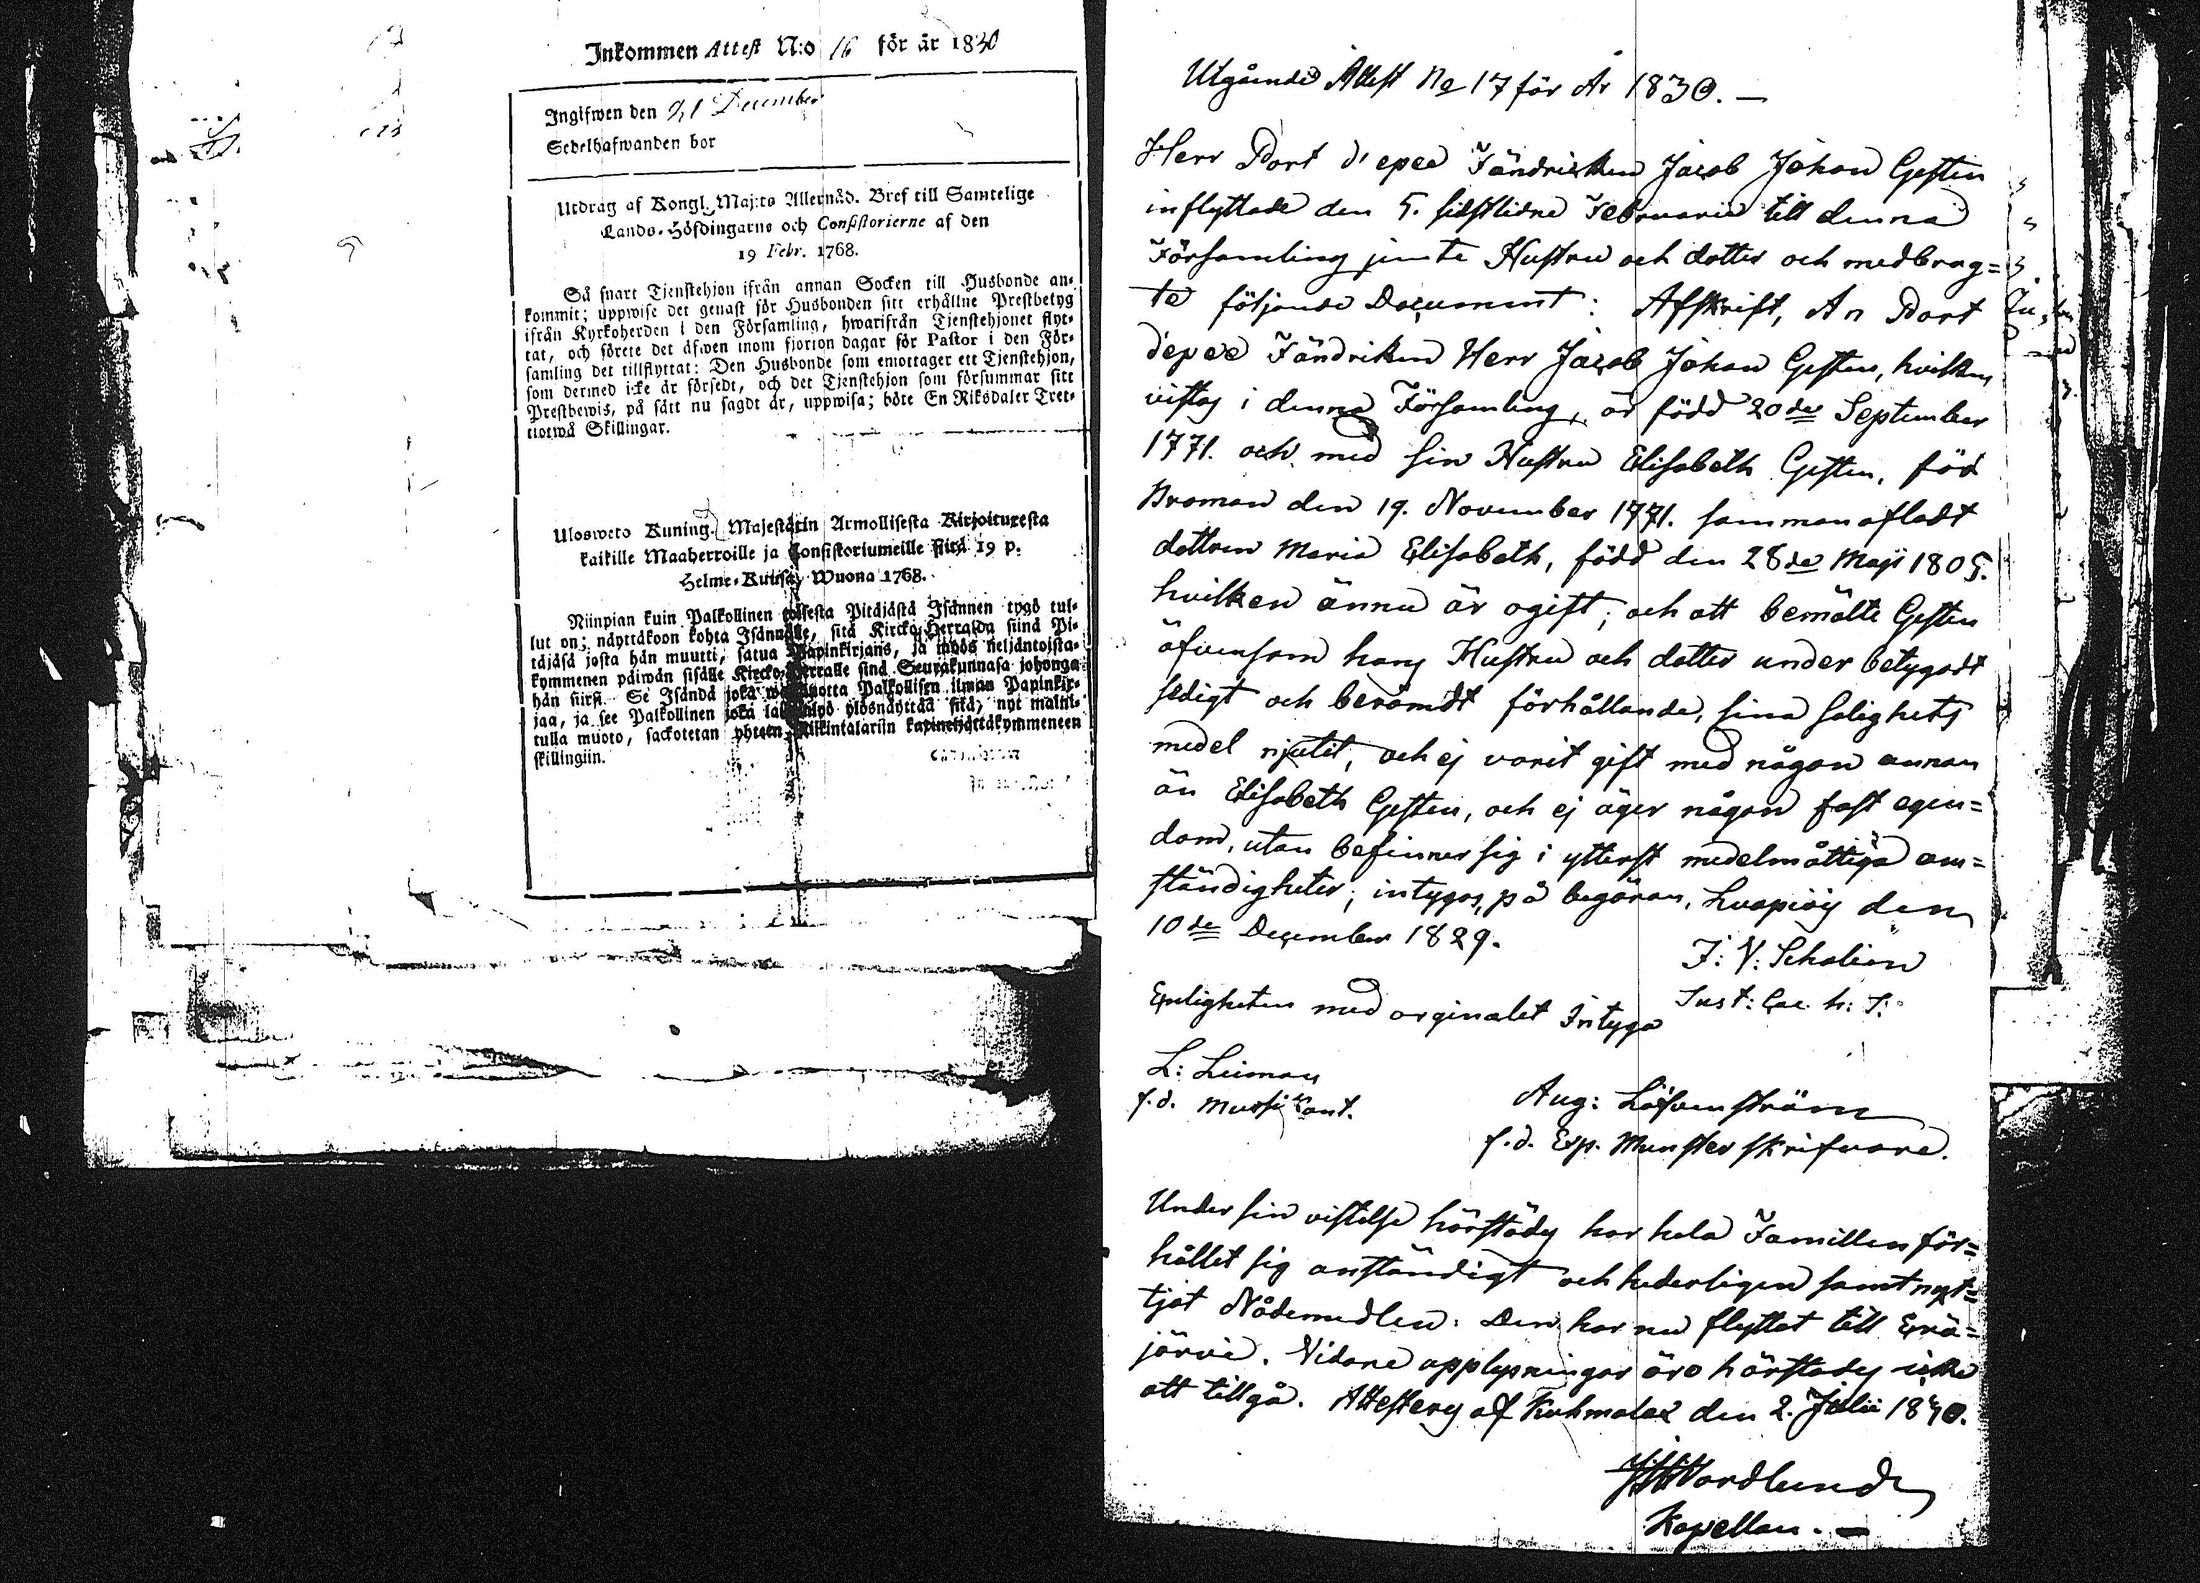 Inkommen Attest N:o 16 för år 1830
Ingifwen den 9/21 December
Sedelhafwanden bor
Utdrag af Kongl. Maj:ts Allernåd. Bref till Samtelige
Lands-Höfdingarne och Consistorierne af den
19 Febr. 1768.
Så snart Tjenstehjon ifrån annan Socken till Husbonde an-
kommit; uppwise det genast för Husbonden sitt erhållne Prestbetyg
ifrån Kyrkoherden i den Församling, hwarifrån Tjenstehjonet flyt-
tat, och förete det äfwen inom fjorton dagar för Pastor i den För-
samling det tillflyttat: Den Husbonde som emottager ett Tjenstehjon,
som dermed icke är försedt, och det Tjenstehjon som försummar sitt
Prestbewis, på sätt nu sagdt är, uppwisa; böte En Riksdaler Tret-
tiotwå Skillingar.
Ulosweto Kuning. Majestätin Armollisesta Kirjoituxesta
kaikille Maaherroille ja Consistoriumeille siitä 19 p.
Helme-Kuusa, Wuona 1768.
Niinpian kuin Palkollinen toisesta Pitäjästä Isännen tygö tul-
lut on; näyttäkoon kohta Isännälle, sitä Kircko-Herralda siinä Pi-
täjäsä josta hän muutti, saatua Papinkirjans, ja myös neljäntoista-
kymmenen päiwän sisälle Kircko-Herralle sinä Seurakunnasa johonga
hän siirsi. Se Isändä joka wastaanotta Palkollisen ilman Papinkir-
jaa, ja see Palkollinen joka laiminlyö ylösnäyttää sitä, nyt mainit-
tulla muoto, sackotetan yhteen Rikintalariin kaxineljättäkymmeneen
skillingiin.
Utgående Attest No 17 för År 1830. —
Herr Port d'epee Fändricken Jacob Johan Gesten
inflyttade den 5. sidstlidne Februarii till denna
Församling jemte Hustru och dotter och medbrag=
te följande Document: Afskrift, An Port
depee Fändriken Herr Jacob Johan Gesten, hvilken
vistas i denna Församling, är född 20de September
1771. och med sin Hustru Elisabeth Gesten, föd
Broman den 19. November 1771. sammanafladt
dottren Maria Elisabeth, född den 28de Maji 1805.
hvilken ännu är ogift; och att bemälte Gesten
äfvensom hans Hustru och dotter under betygadt
sedigt och berömdt förhållande, sina salighets
medel njutit, och ej varit gift med någon annan
än Elisabeth Gesten, och ej äger någon fast egen=
dom, utan befinner sig i ytterst medelmåttiga om=
ständigheter; intygas, på begäran, Luopiois den
10de December 1829.
F: V: Scholein
Just: Cae. h: T:
Enligheten med orginalet Intyga
L: Leiman
f.d. Musikant.
Aug: Löfvenström
f.d. Exp. Munsterskrifvare.
Under sin vistelse härstädes har hela Familien för=
hållet sig anständigt och hederligen samt nyt=
tjat Nådemedlen. Den har nu flyttat till Erä=
järvi. Vidare upplysningar äro härstädes icke
att tillgå. Attesteras af Kuhmalax den 2. Julii 1830.
Nordlund
Kapellan. —